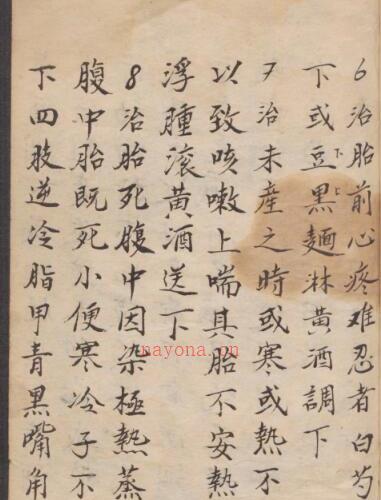 6治胎前心疼难忍者白芍
下或豆黑麵淋黄酒調下
7治未產之時或寒或熱不
以致咳嗽上喘其胎不安熱
浮腫滚黄酒送下
8治胎死腹中因染極熱蒸
腹中胎既死小便寒冷子不
下四肢逆冷脂甲青黑嘴角
nayona.cn